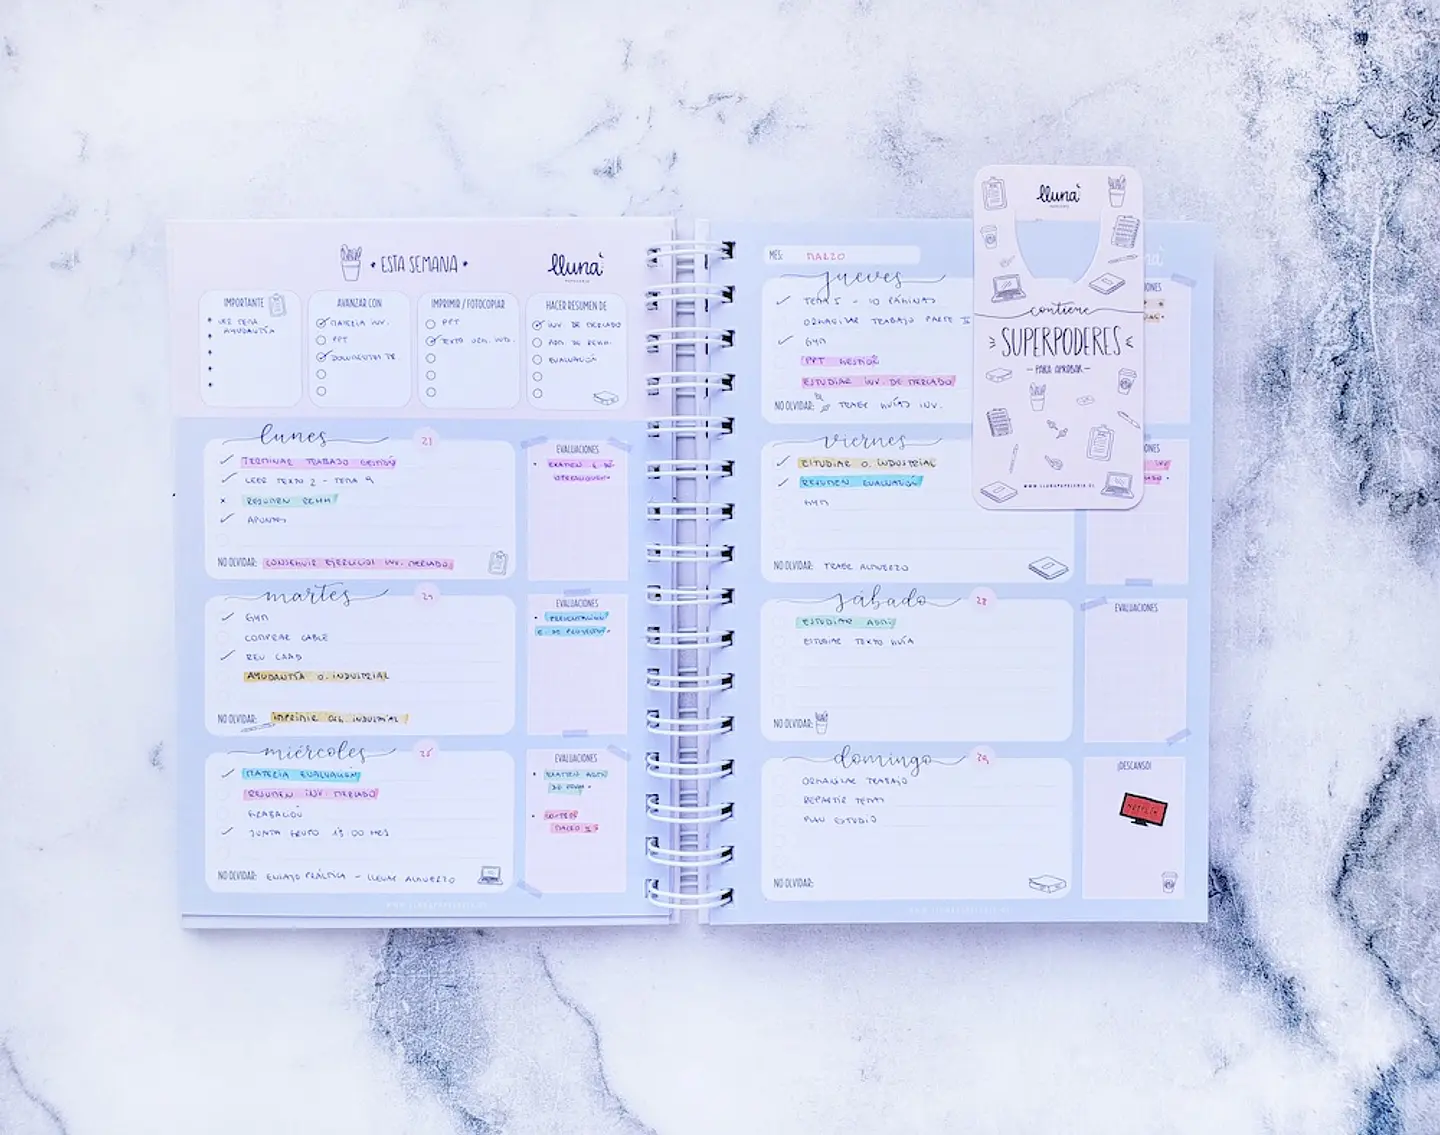 ESTA SEMANA
lluna
PAPELERIA
IMPORTANTE
VER TEMA
AYUDANTÍA
AVANZAR CON
MATERIA INV.
PPT
IMPRIMIR / FOTOCOPIAR
PPT
TEXTO
HACER RESUMEN DE
INV. DE MERCADO
ADM. DE
EVALUACIÓN
lunes
TERMINAR TRABAJO GESTIÓN
LEER TEXTO 2 - TEMA 4
RESUMEN
APUNTES
NO OLVIDAR:
EJERCICIOS INV. MERCADO
EVALUACIONES
EXAMEN
martes
GYM
COMPRAR CABLE
REU
AYUDANTÍA O. INDUSTRIAL
NO OLVIDAR: IMPRIMIR INDUSTRIAL
EVALUACIONES
PRESENTACIÓN
miércoles
MATERIA EVALUACIÓN
RESUMEN INV. MERCADO
GRABACIÓN
JUNTA GRUPO
NO OLVIDAR: ENSAYO PRÁCTICA - LLEVAR ALMUERZO
EVALUACIONES
EXAMEN
MES: MARZO
jueves
TEMA 5 - 10 PÁGINAS
ORGANIZAR TRABAJO PARTE
GYM
PPT GESTIÓN
ESTUDIAR INV. DE MERCADO
NO OLVIDAR: TRAER GUÍAS INV.
viernes
ESTUDIAR O. INDUSTRIAL
RESUMEN EVALUACIÓN
GYM
NO OLVIDAR: TRAER ALMUERZO
sábado 28
ESTUDIAR ADM.
ESTUDIAR TEXTO GUÍA
NO OLVIDAR:
EVALUACIONES
domingo 29
ORGANIZAR TRABAJO
REPARTIR TEMAS
PLAN ESTUDIO
NO OLVIDAR:
¡DESCANSO!
NETFLIX
lluna
PAPELERIA
contiene
SUPERPODERES
- PARA APROBAR -
WWW.LLUNAPAPELERIA.CL